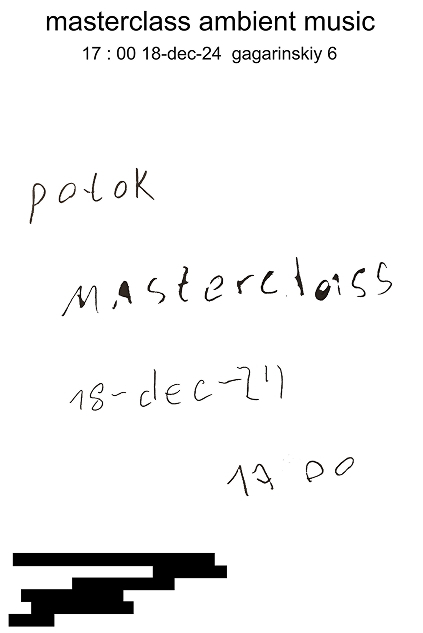 masterclass ambient music
17 : 00 18-dec-24 gagarinskiy 6
potok
masterclass
18-dec-24
17 00